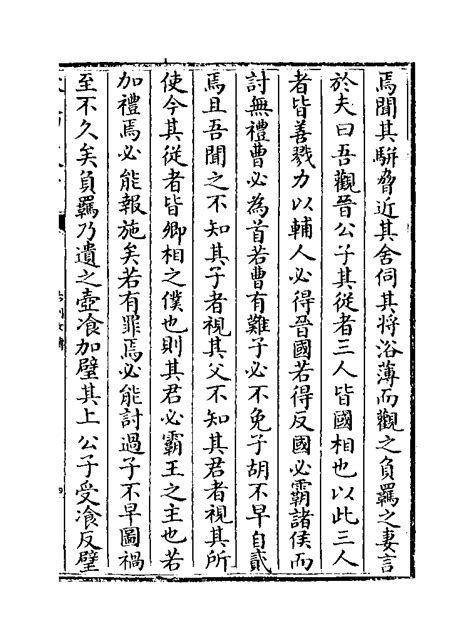 焉聞其駢脅近其舍伺其將浴薄而觀之負羈之妻言
於夫曰吾觀晉公子其從者三人皆國相也以此三人
者皆善戮力以輔人必得晉國若得反國必霸諸侯而
討無禮曹必為首若曹有難子必不免子胡不早自貳
焉且吾聞之不知其子者視其父不知其君者視其所
使今其從者皆卿相之僕也則其君必霸王之主也若
加禮焉必能報施矣若有罪焉必能討過子不早圖禍
至不久矣負羈乃遺之壺飡加璧其上公子受飡反璧